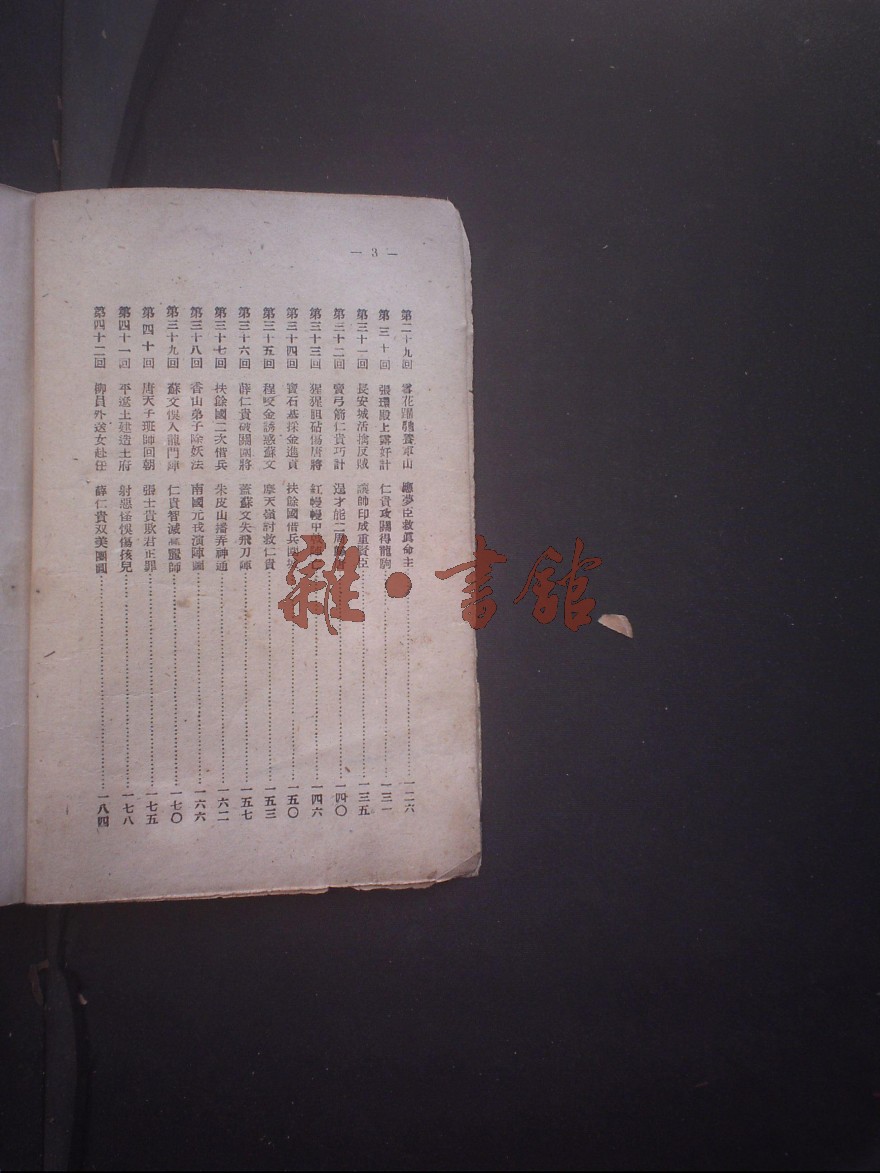 — 3 —
第二十九回 雪花鬃飛奔軍山 應夢臣救眞命主 一二六
第三十回 張環殿上露奸計 仁貴攻關得龍駒 一三一
第三十一回 長安城活擒反賊 讓帥印威重賢臣 一三五
第三十二回 賣弓箭仁貴巧計 逞才能二周 一四〇
第三十三回 猩猩胆砧傷唐將 紅幔幔 一四六
第三十四回 寶石基採金進貢 扶餘國借兵圍城 一五〇
第三十五回 程咬金誘惑蘇文 摩天嶺討救仁貴 一五三
第三十六回 薛仁貴破關圍將 蓋蘇文失飛刀陣 一五七
第三十七回 扶餘國二次借兵 朱皮山播弄神通 一六二
第三十八回 香山弟子除妖法 南國元戎演陣圖 一六六
第三十九回 蘇文悞入龍門陣 仁貴智滅 師 一七〇
第四十回 唐天子班師回朝 張士貴欺君正罪 一七五
第四十一回 平遼王建造王府 射惡怪悞傷孩兒 一七八
第四十二回 柳員外送女赴任 薛仁貴双美團圓 一八四
雜·書館